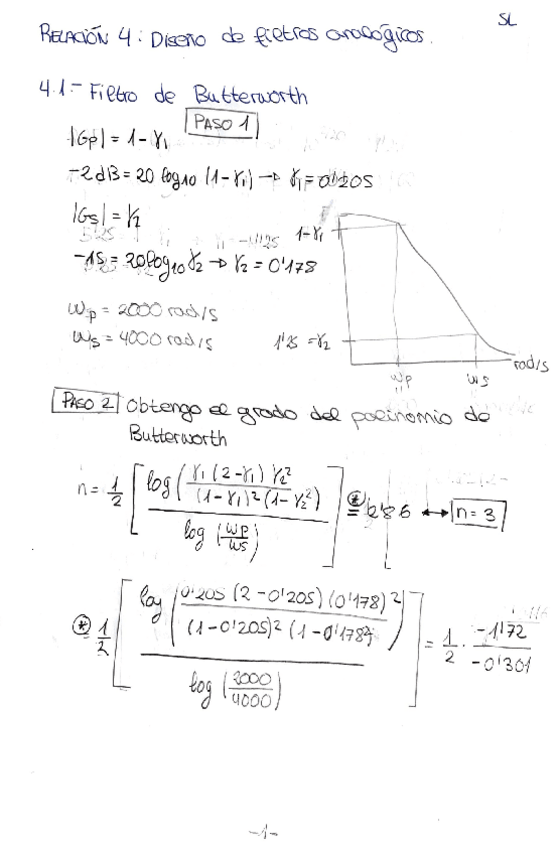 SL
RELACIÓN 4: Diseño de filtros analógicos.
4.1- Filtro de Butterworth
PASO 1
|Gp| = 1-γ1
-2dB = 20 log10 (1-γ1) → γ1 = 0'205
|Gs| = γ2
-15 = 20log10 γ2 → γ2 = 0'178
ωp = 2000 rad/s
ωs = 4000 rad/s
1-γ1
1'25 = γ2
rad/s
ωp
ωs
PASO 2 Obtengo el grado del polinomio de
Butterworth
n = 1/2 [ log( γ1 (2-γ1) γ2² / (1-γ1)² (1-γ2²) ) / log (ωp/ωs) ] ⊛= 2'86 ↔ n = 3
⊛ 1/2 [ log ( 0'205 (2-0'205) (0'178)² / (1-0'205)² (1-0'178²) ) / log (2000/4000) ] = 1/2 · -1'72 / -0'301
-1-